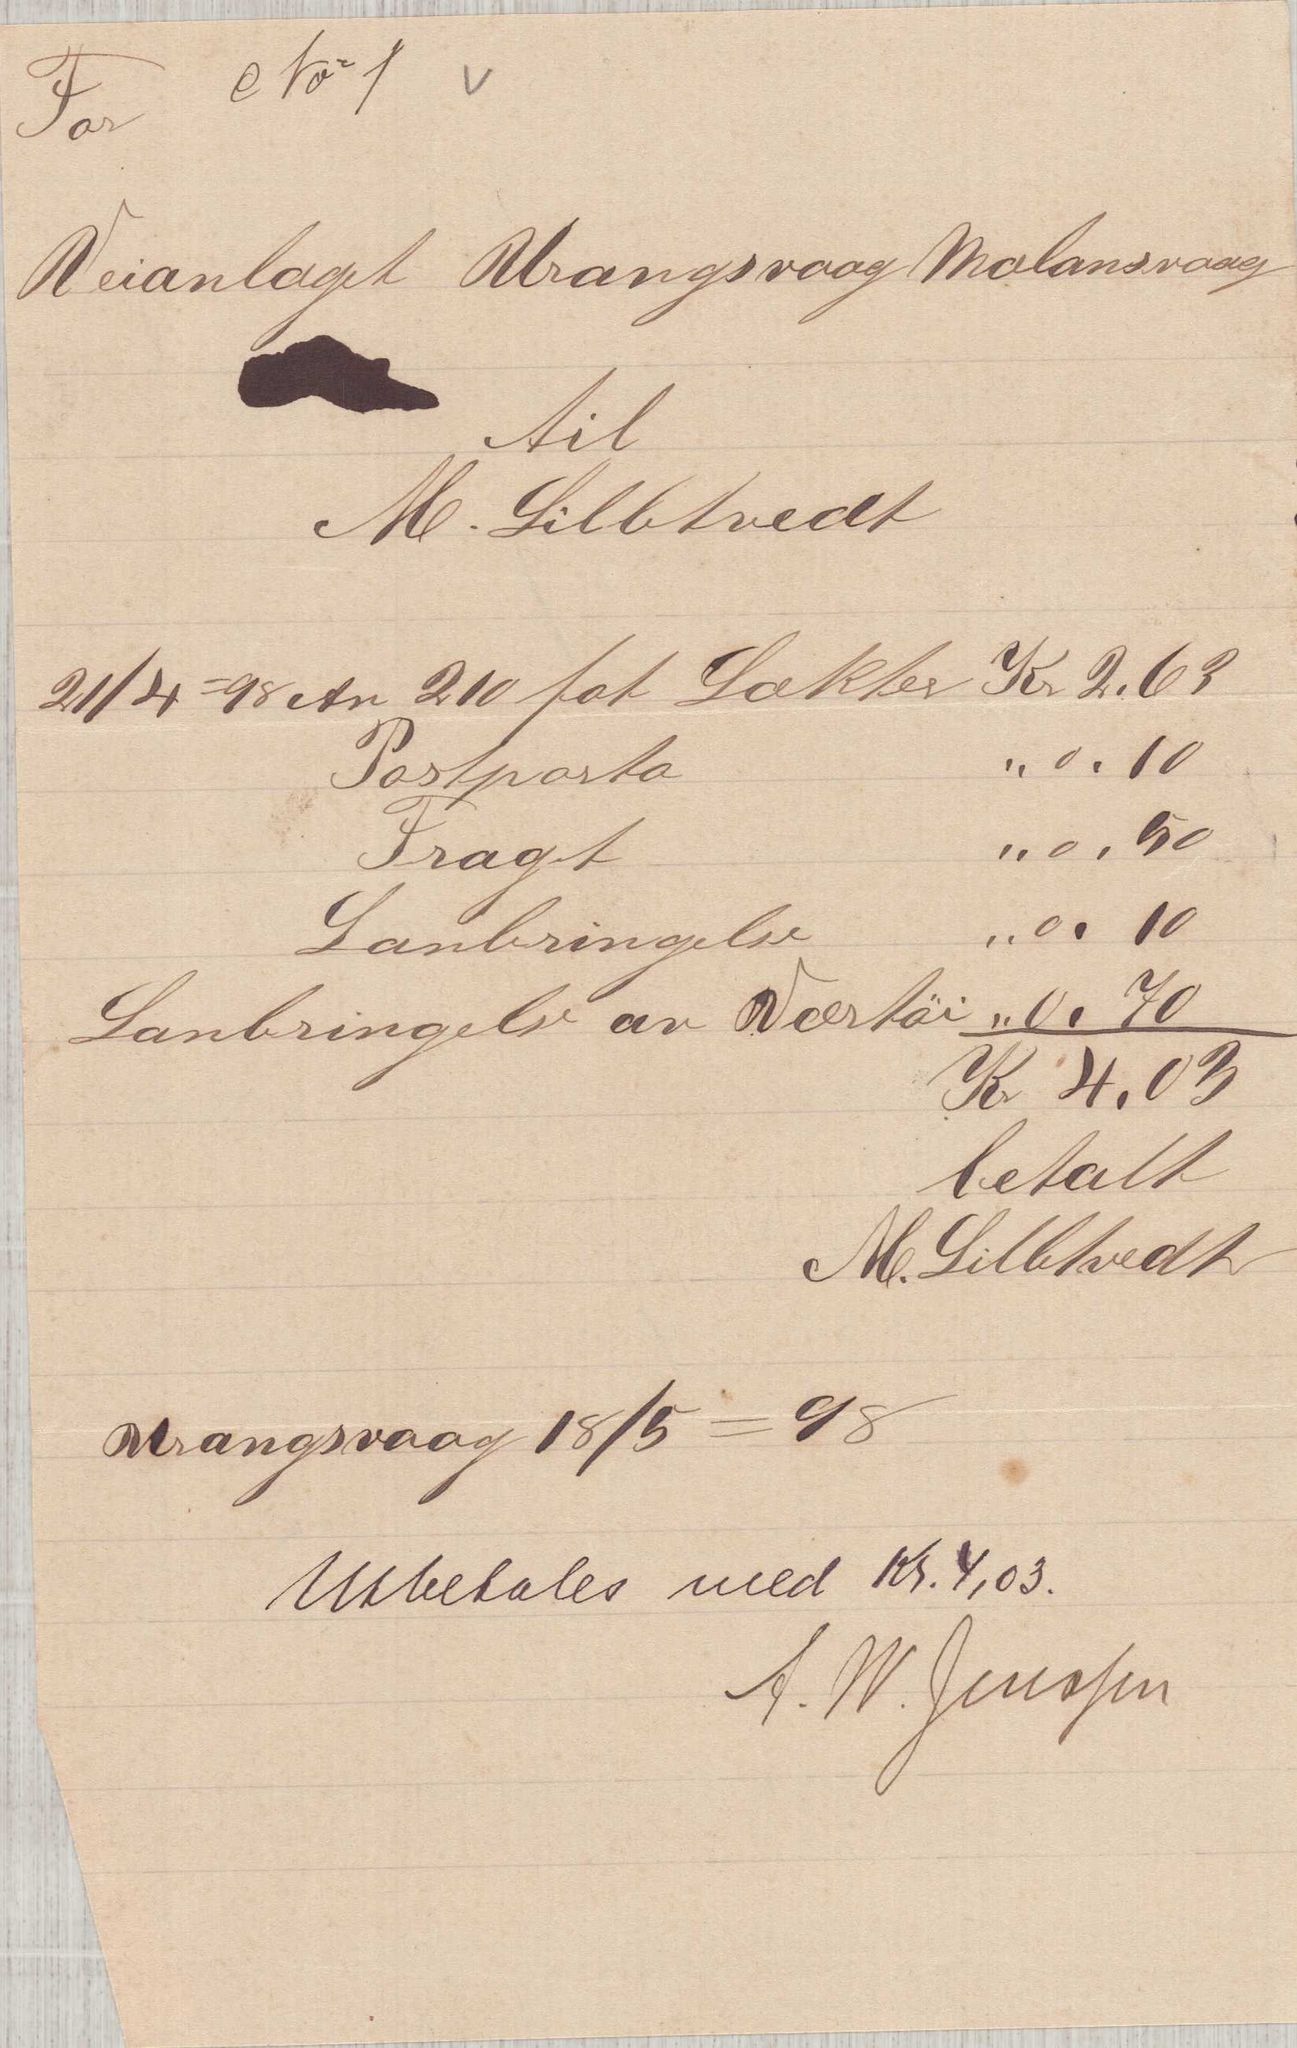 No 1 v
For
Veianlaget Urangsvaag Molansvaag
til
M. Siltvedt
21/4=98 An 210 fot Lækter Kr 2.63
Postporto " 0.10
Fragt " 0.50
Lanbringelse " 0.10
Lanbringelse av Værtöi " 0.70
Kr 4.03
betalt
M. Siltvedt
Urangsvaag 18/5=98
Utbetales med Kr. 4,03.
A. W. Jenssen